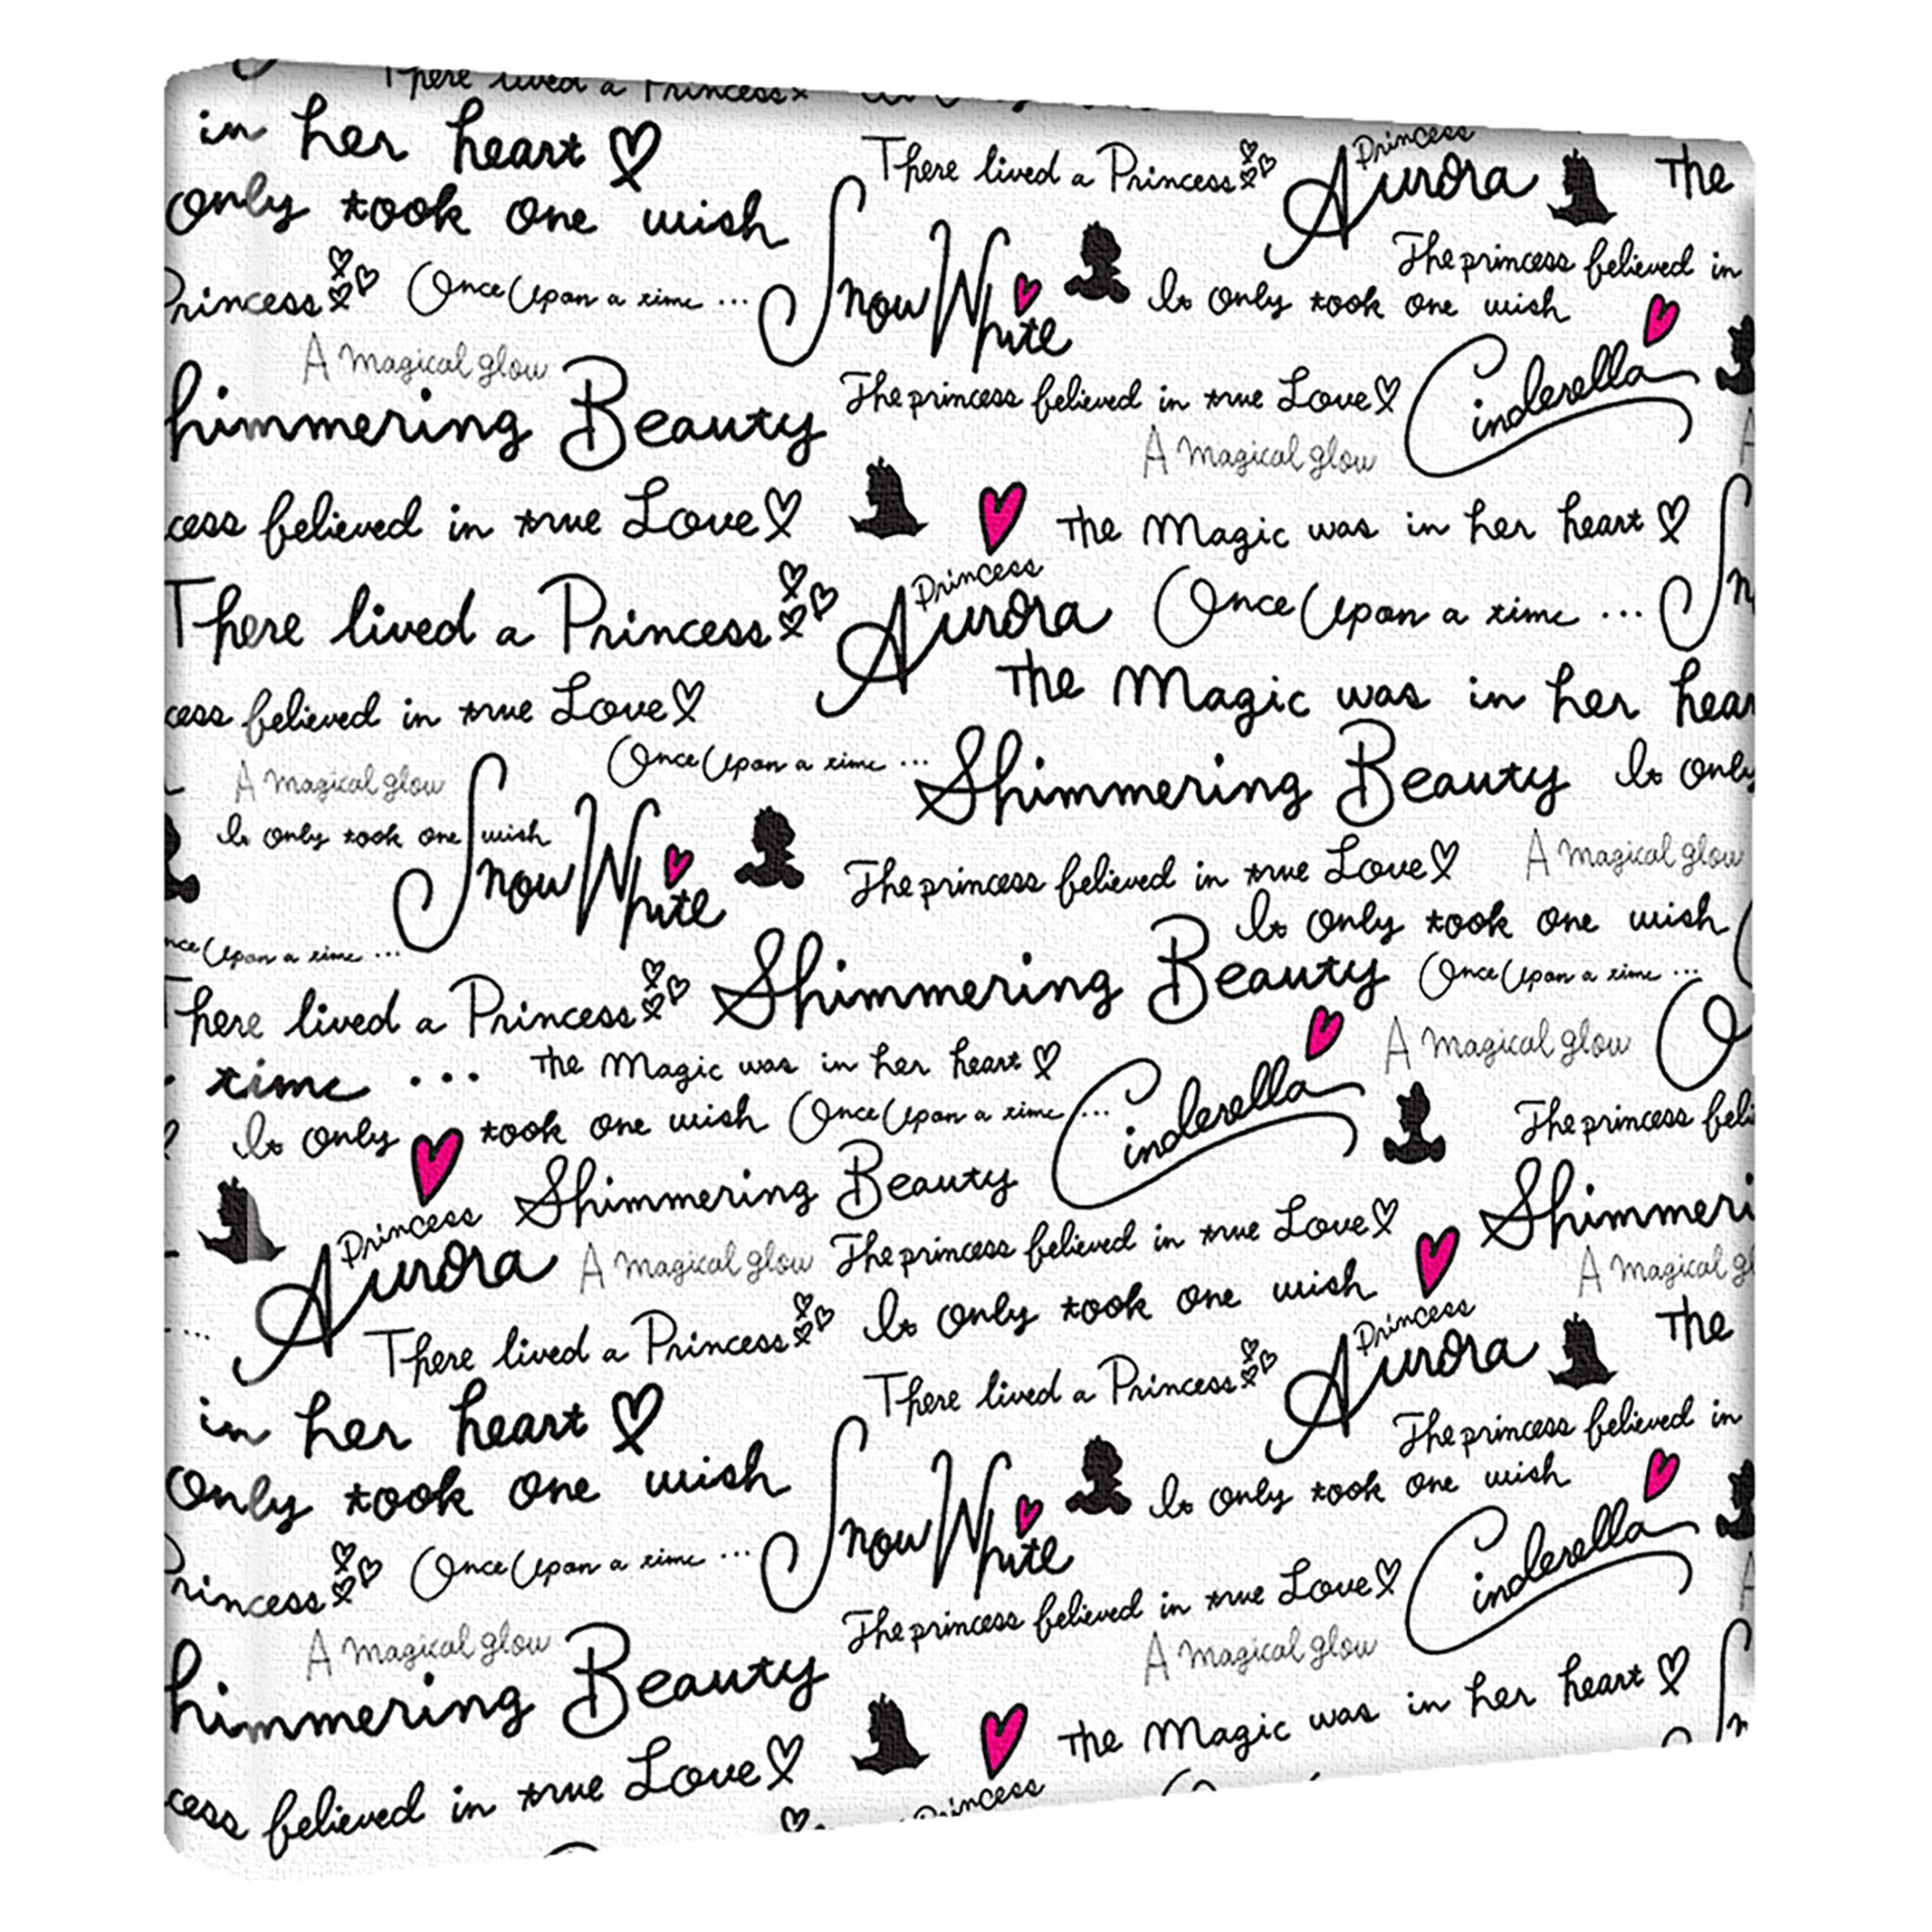 There lived a Princess
in her heart
There lived a Princess
Princess
Aurora
The
only took one wish
Snow White
The princess believed in
Princess
Once Upon a time ...
It only took one wish
A magical glow
Cinderella
himmering Beauty
The princess believed in true Love
A magical glow
cess believed in true Love
The Magic was in her heart
There lived a Princess
Princess
Aurora
Once Upon a time ...
Sn
cess believed in true Love
The Magic was in her hear
Once Upon a time ...
Shimmering Beauty
It only
A magical glow
It only took one wish
Snow White
The princess believed in true Love
A magical glow
It only took one wish
nce Upon a time ...
Shimmering Beauty
Once Upon a time ...
There lived a Princess
A magical glow
O
time ...
The Magic was in her heart
Cinderella
It only took one wish
Once Upon a time ...
The princess beli
Shimmering Beauty
Shimmeri
Princess
Aurora
A magical glow
The princess believed in true Love
A magical gl
There lived a Princess
It only took one wish
Princess
Aurora
The
in her heart
There lived a Princess
The princess believed in
only took one wish
Snow White
It only took one wish
Princess
Once Upon a time ...
Cinderella
A magical glow
The princess believed in true Love
himmering Beauty
A magical glow
The Magic was in her heart
cess believed in true Love
Princess